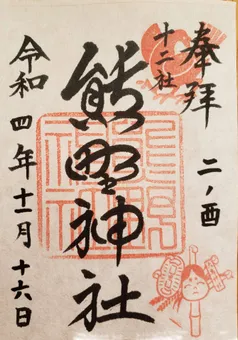 奉拝
二ノ酉
十二社
熊野神社
令和四年十一月十六日